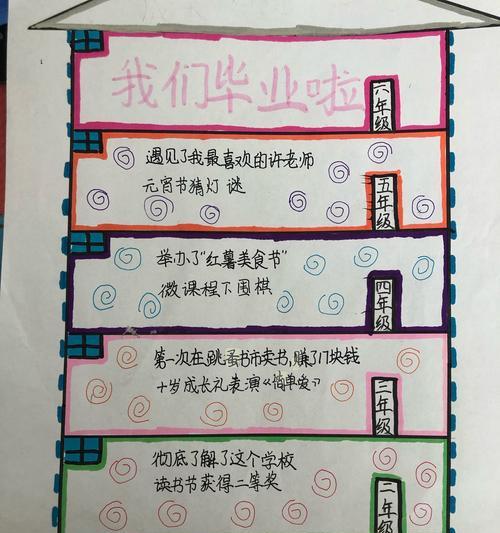 我们毕业啦
六年级
遇见了我最喜欢的许老师
元宵节猜灯谜
五年级
举办了"红薯美食书"
微课程下围棋
四年级
第一次在跳蚤书市卖书,赚了17块钱
十岁成长礼表演《简单爱》
三年级
彻底了解了这个学校
读书节获得二等奖
二年级